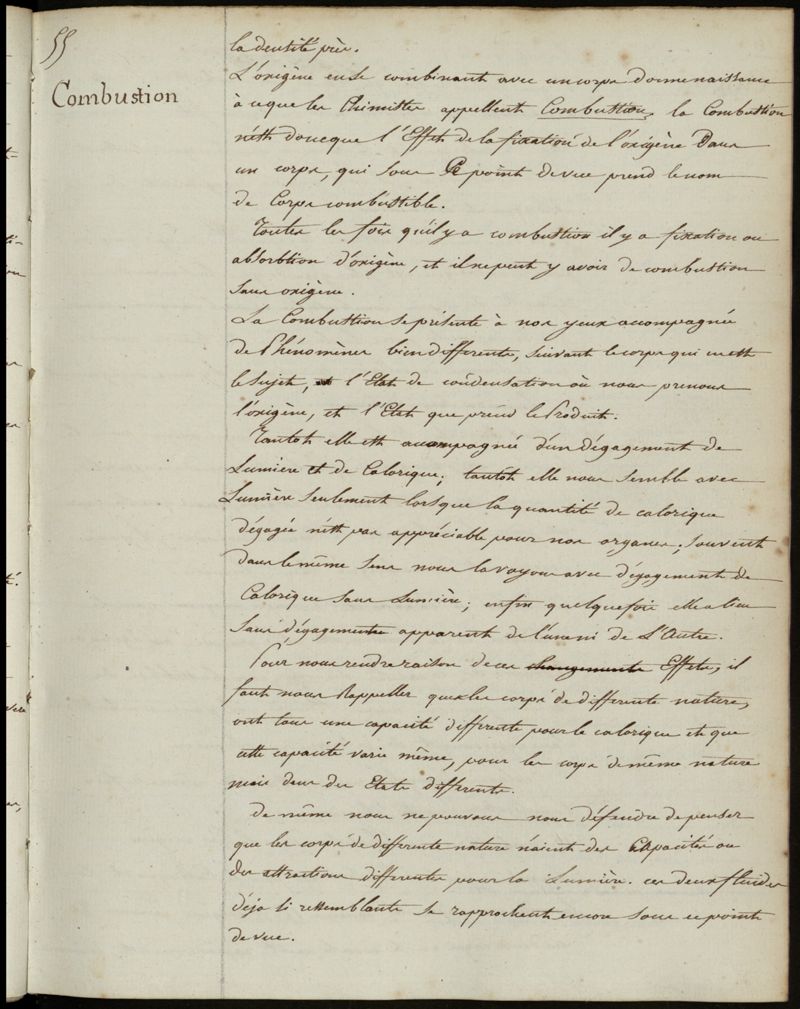 55
Combustion
la densité près.
L'oxigène en se combinant avec un corps donne naissance
à ce que les Chimistes appellent Combustion, la Combustion
n'est donc que l'Effet de la fixation de l'oxigène Dans
un corps, qui sous Ce point de vue prend le nom
de Corps combustible.
Toutes les fois qu'il y a combustion il y a fixation ou
absorbtion d'oxigène, et il ne peut y avoir de combustion
sans oxigène.
La Combustion se présente à nos yeux accompagnée
de Phénomènes bien differents, suivant le corps qui en est
le sujet, l'Etat de condensation où nous prenons
l'oxigène, et l'Etat que prend le Produit.
Tantot elle est accompagnée d'un dégagement de
Lumière et de Calorique; tantot elle nous semble avec
Lumière seulement lorsque la quantité de calorique
dégagée n'est pas appréciable pour nos organes; souvent
dans le même sens nous la voyons avec dégagement de
Calorique sans Lumière; enfin quelquefois elle a lieu
sans dégagement apparent de l'un ni de L'Autre.
Pour nous rendre raison de ces changements Effets, il
faut nous Rappeller que les corps de differente nature,
ont tous une capacité différente pour le calorique et que
cette capacité varie même, pour les corps de même nature
mais dans des Etats differents.
de même nous ne pouvons nous défendre de penser
que les corps de differente nature n'aient des Capacités ou
des attractions differentes pour la Lumière. ces deux fluides
déja si ressemblants se rapprochent encore sous ce point
de vue.